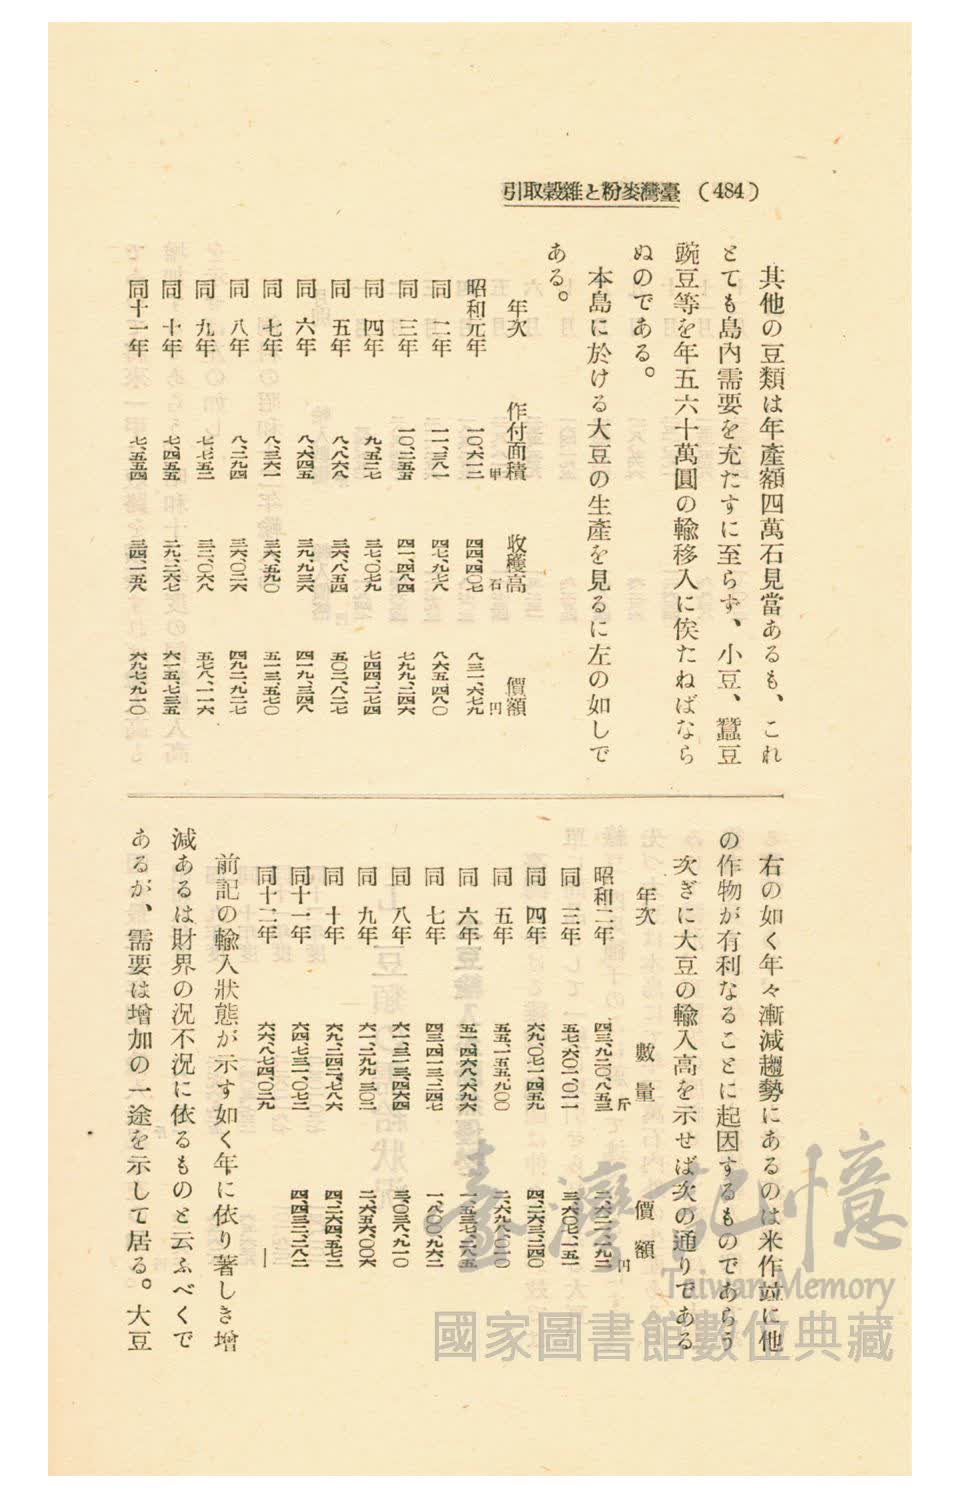 引取穀雜と粉麥灣臺 (484)
其他の豆類は年產額四萬石見當あるも、これ
とても島內需要を充たすに至らず、小豆、蠶豆
豌豆等を年五六十萬圓の輸移入に俟たねばなら
ぬのである。
本島に於ける大豆の生產を見るに左の如しで
ある。
年次 作付面積 收穫高 價額
甲 石 円
昭和元年 一〇、六一二 四四、四〇七 八三一、六七九
同 二年 一一、三八一 四七、九七八 八六五、四八〇
同 三年 一〇、二五五 四一、四八四 七九九、二四六
同 四年 九、五二七 三七、〇七九 七四四、二七四
同 五年 八、八六八 三六、八五四 五〇二、八二七
同 六年 八、六四五 三九、九三六 四一九、三四八
同 七年 八、三六一 三六、五九〇 五一三、五七〇
同 八年 八、二九四 三六、〇二六 四九二、九二七
同 九年 七、七五二 三三、〇六八 五七八、一一六
同 十年 七、四五五 二九、二六七 六一五、七三五
同十一年 七、五五四 三四、一五八 六九七、九一〇
右の如く年々漸減趨勢にあるのは米作竝に他
の作物が有利なることに起因するものであらう
次ぎに大豆の輸入高を示せば次の通りである
年次 數量 價額
斤 円
昭和二年 四三、九二〇、八五三 二、六二一、九三二
同 三年 五七、六〇二、〇二一 三、六〇七、一五一
同 四年 六九、〇七一、四五九 四、二六三、二四〇
同 五年 五五、一五五、九〇〇 二、六九八、〇二〇
同 六年 五一、四六八、六九六 一、五三七、二八五
同 七年 四三、四一三、二四七 一、八〇〇、九六二
同 八年 六一、三一三、四六四 三、〇三八、九一〇
同 九年 六一、二九九、三〇二 二、六五六、〇〇六
同 十年 六九、二四二、七八六 四、二六四、五七二
同十一年 六四、七三一、〇七二 四、四三二、二八二
同十二年 六六、八七四、〇二九 ―
前記の輸入狀態が示す如く年に依り著しき增
減あるは財界の況不況に依るものと云ふべくで
あるが、需要は增加の一途を示して居る。大豆
臺灣記憶
Taiwan Memory
國家圖書館數位典藏